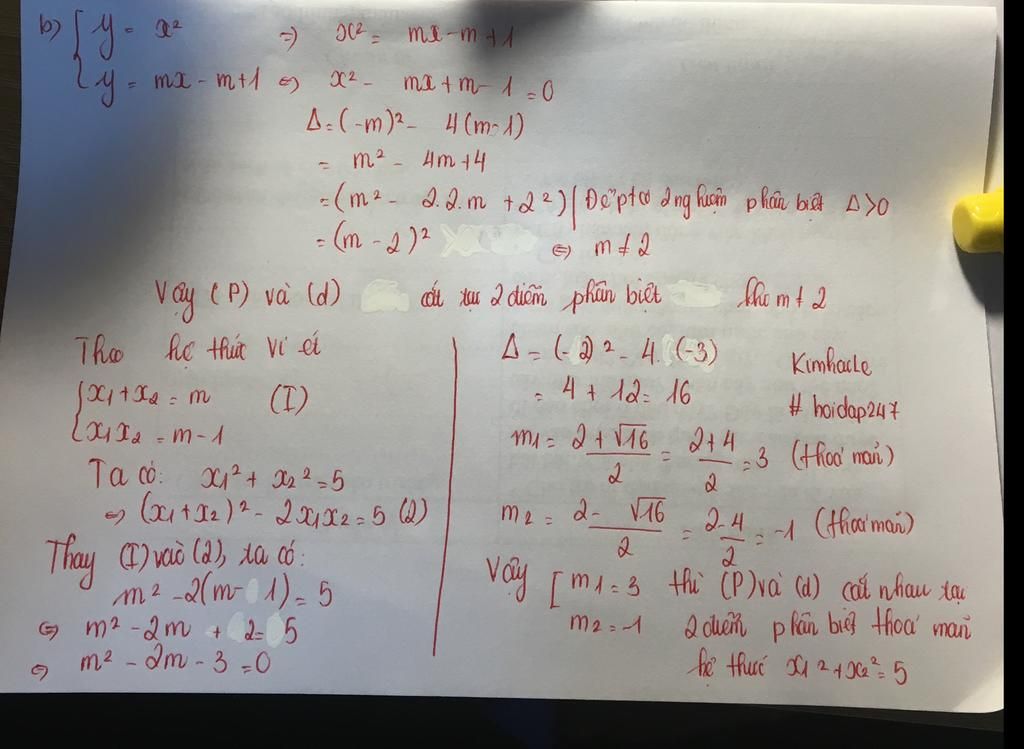 b) { y = x² => x² = mx - m + 1
y = mx - m + 1 <=> x² - mx + m - 1 = 0
Δ = (-m)² - 4(m-1)
= m² - 4m + 4
= (m² - 2.2.m + 2²) | Để pt có 2 nghiệm phân biệt Δ > 0
= (m - 2)² <=> m ≠ 2
Vậy (P) và (d) cắt tại 2 điểm phân biệt khi m ≠ 2
Theo hệ thức Vi ét
{ x₁ + x₂ = m (I)
x₁x₂ = m - 1
Ta có: x₁² + x₂² = 5
<=> (x₁ + x₂)² - 2x₁x₂ = 5 (2)
Thay (I) vào (2), ta có:
m² - 2(m - 1) = 5
<=> m² - 2m + 2 = 5
<=> m² - 2m - 3 = 0
Δ = (-2)² - 4.(-3)
= 4 + 12 = 16
m₁ = (2 + √16)/2 = (2 + 4)/2 = 3 (thoả mãn)
m₂ = (2 - √16)/2 = (2 - 4)/2 = -1 (thoả mãn)
Vậy [ m₁ = 3 thì (P) và (d) cắt nhau tại
m₂ = -1 2 điểm phân biệt thoả mãn
hệ thức x₁² + x₂² = 5
KimhacLe
# hoidap247